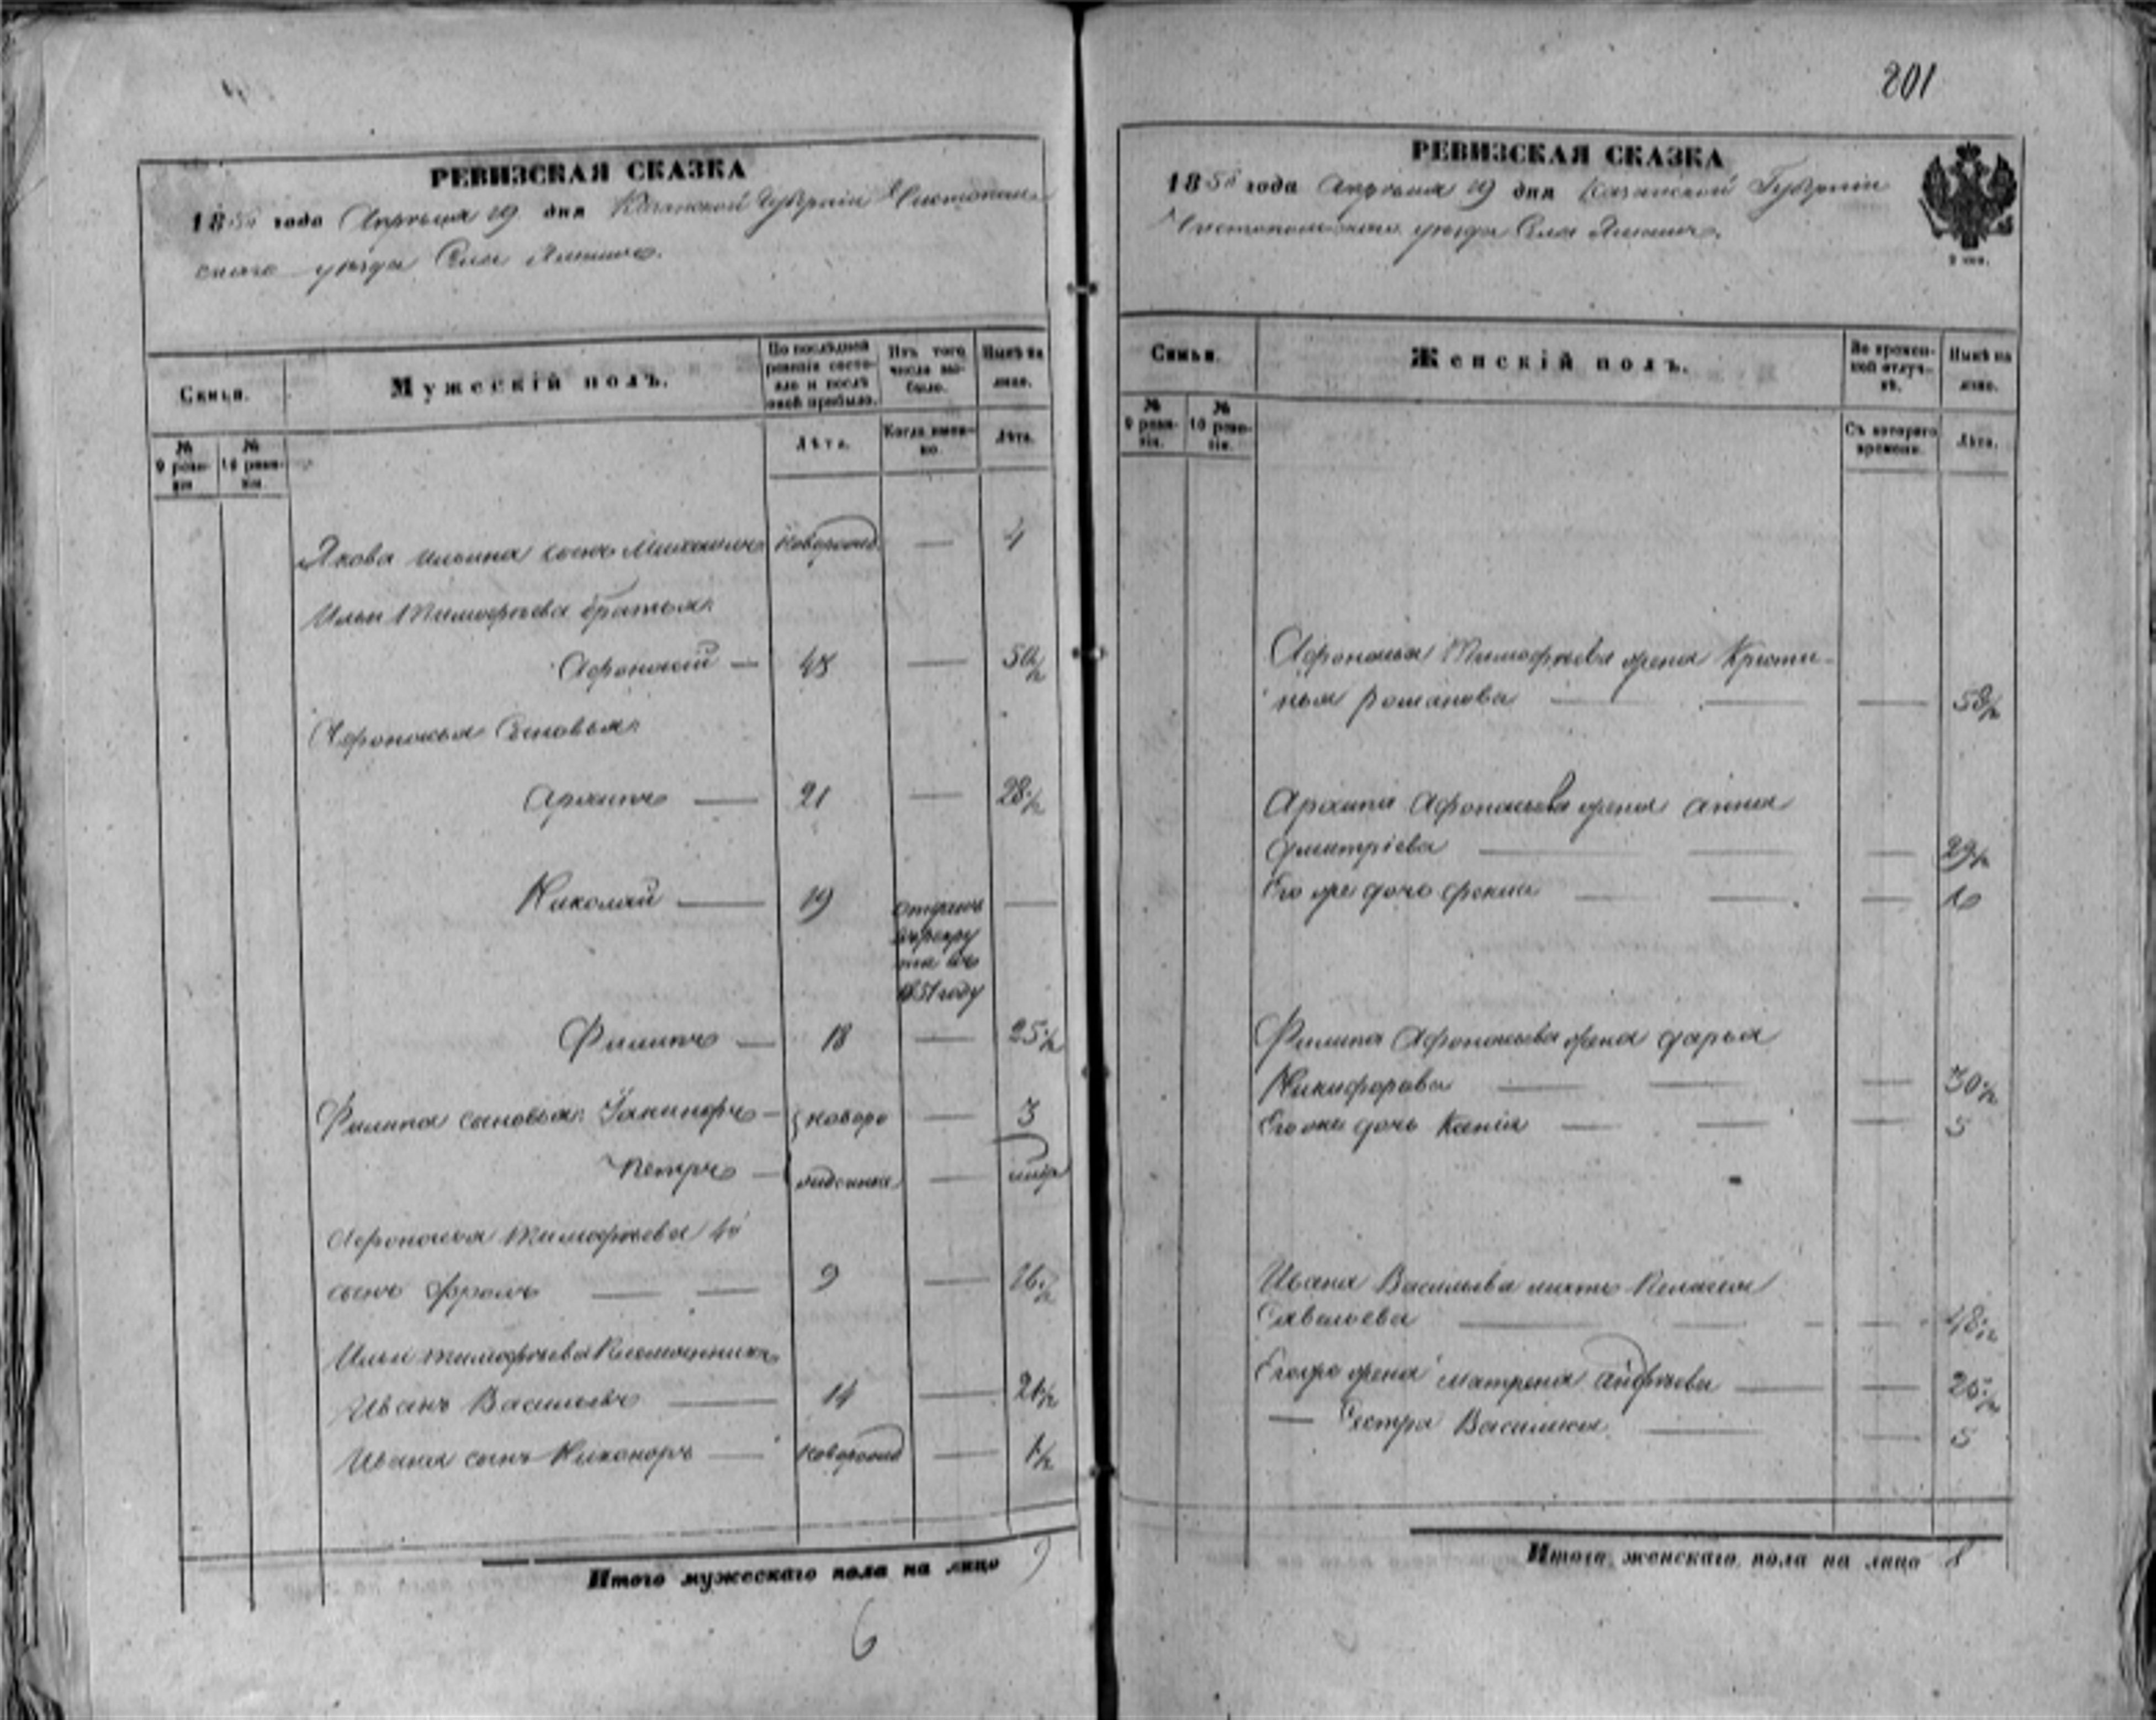 201
РЕВИЗСКАЯ СКАЗКА
1858 года Апреля 19 дня Казанской Губерніи Чистополь-
скаго уезда Села
Семья.
Мужескій полъ.
По последней ревизіи состояло и после оной прибыло.
Изъ того числа выбыло.
Ныне на лицо.
№ 9 ревизіи
№ 10 ревизіи
Лета.
Когда именно.
Лета.
Якова Ильина сынъ Михаилъ новорожд. — 4
Ильи Тимофеева братья:
Афонасий — 43 — 50 1/2
Афонасья Сыновья:
Архипъ — 21 — 28 1/2
Николай — 19 отданъ въ рекруты въ 1851 году —
Филипъ — 18 — 25 1/2
Филипа сыновья: — новоро — 3
Петръ — жденные —
Афонасья Тимофеева 4й
сынъ Фролъ — — 9 — 16 1/2
Ильи Тимофеева Племянникъ
Иванъ Васильевъ — 14 — 21 1/2
Ивана сынъ Никаноръ — новорожд — 1/2
Итого мужескаго пола на лицо 9
6
РЕВИЗСКАЯ СКАЗКА
1858 года Апреля 19 дня Казанской Губерніи
Чистопольскаго уезда Села
2 коп.
Семья.
Женскій полъ.
Во временной отлучке.
Ныне на лицо.
№ 9 ревизіи.
№ 10 ревизіи.
Съ котораго времени.
Лета.
Афонасья Тимофеева жена Кристи-
нья Романова — — — 53 1/2
Архипа Афонасьева жена Анна
Дмитріева — — — 29 1/2
Его же дочь — — — 10
Филипа Афонасьева жена Дарья
Никифорова — — — 30 1/2
Его же дочь — — — 5
Ивана Васильева мать Пелагея
Савельева — — — 48 1/2
Его же жена Матрена — — 25 1/2
— Сестра Василиса — — 5
Итого женскаго пола на лицо 8